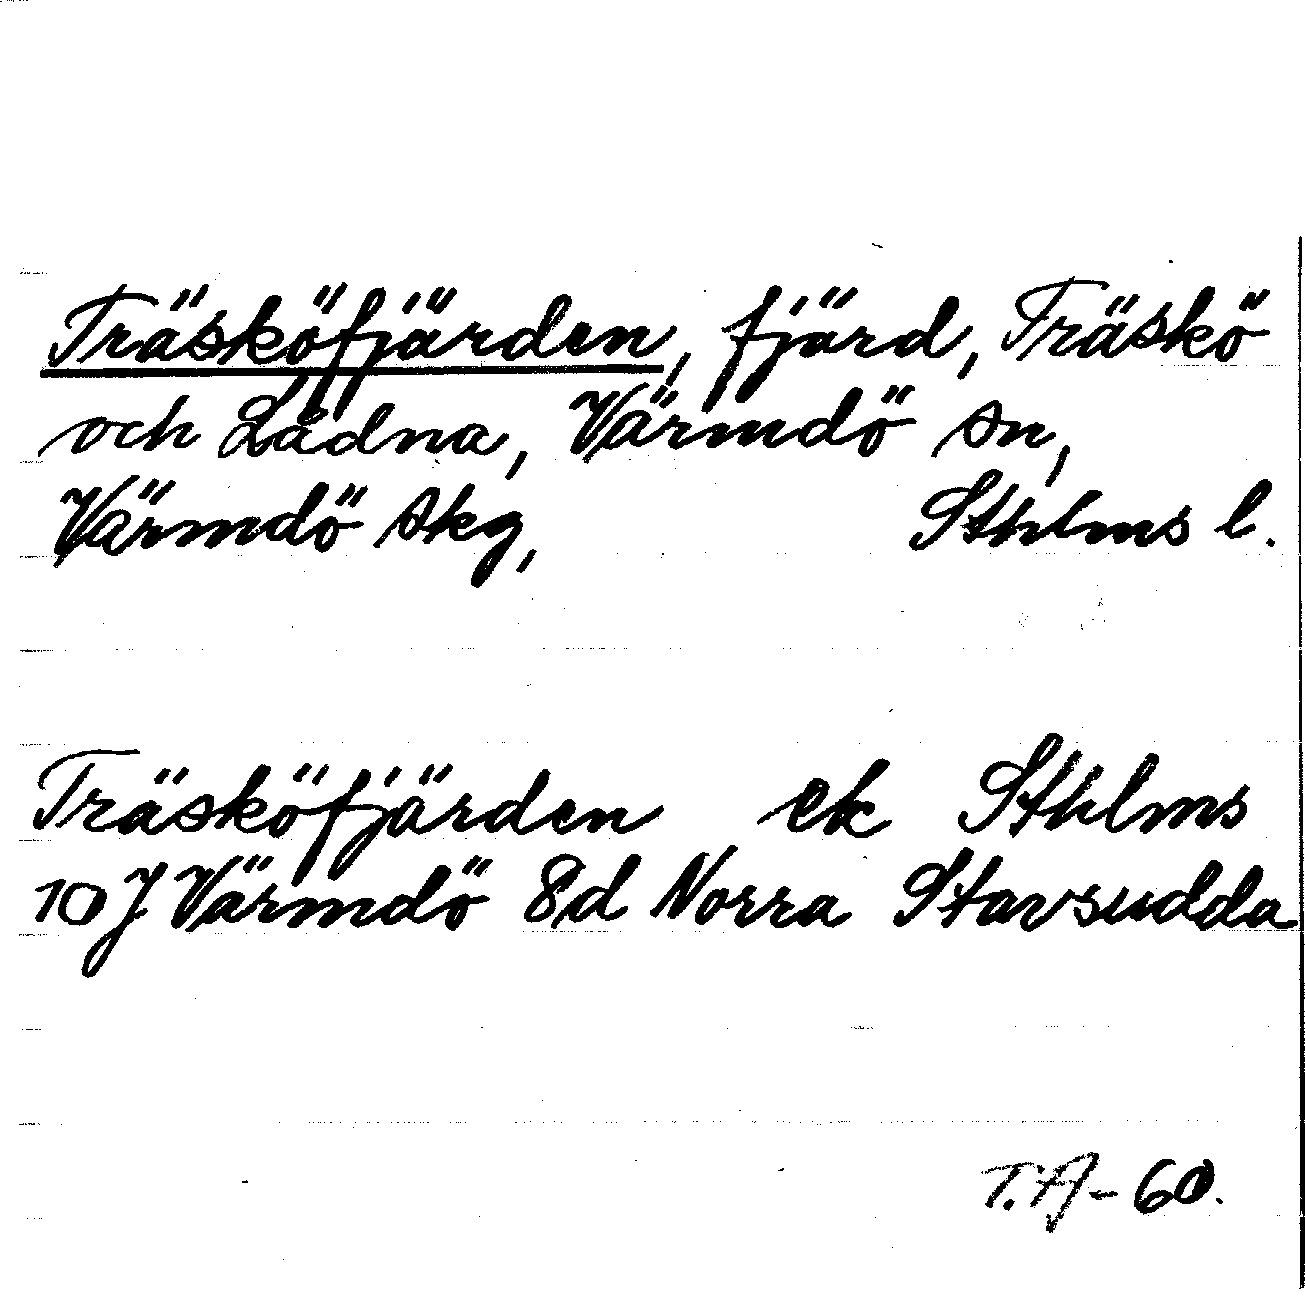 Träsköfjärden, fjärd, Träskö
och Lådna, Värmdö sn,
Värmdö skg, Sthlms l.
Träsköfjärden ek Sthlms
10 J Värmdö 8d Norra Stavsudda
T.A-60.